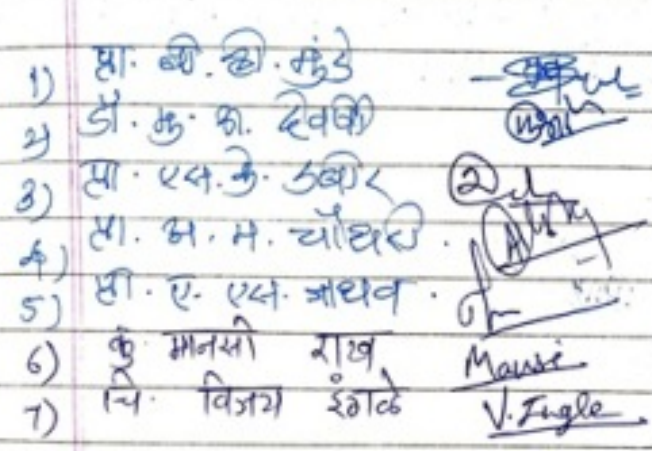 1) प्रा. बी. डी. मुंडे
2) डॉ. मु. का. देवर्षी
3) प्रा. एस. के. डबीर
4) प्रा. अ. म. चौधरी.
5) प्रा. ए. एस. जाधव.
6) कु मानसी राख Mansi
7) चि. विजय इंगळे V. Ingle